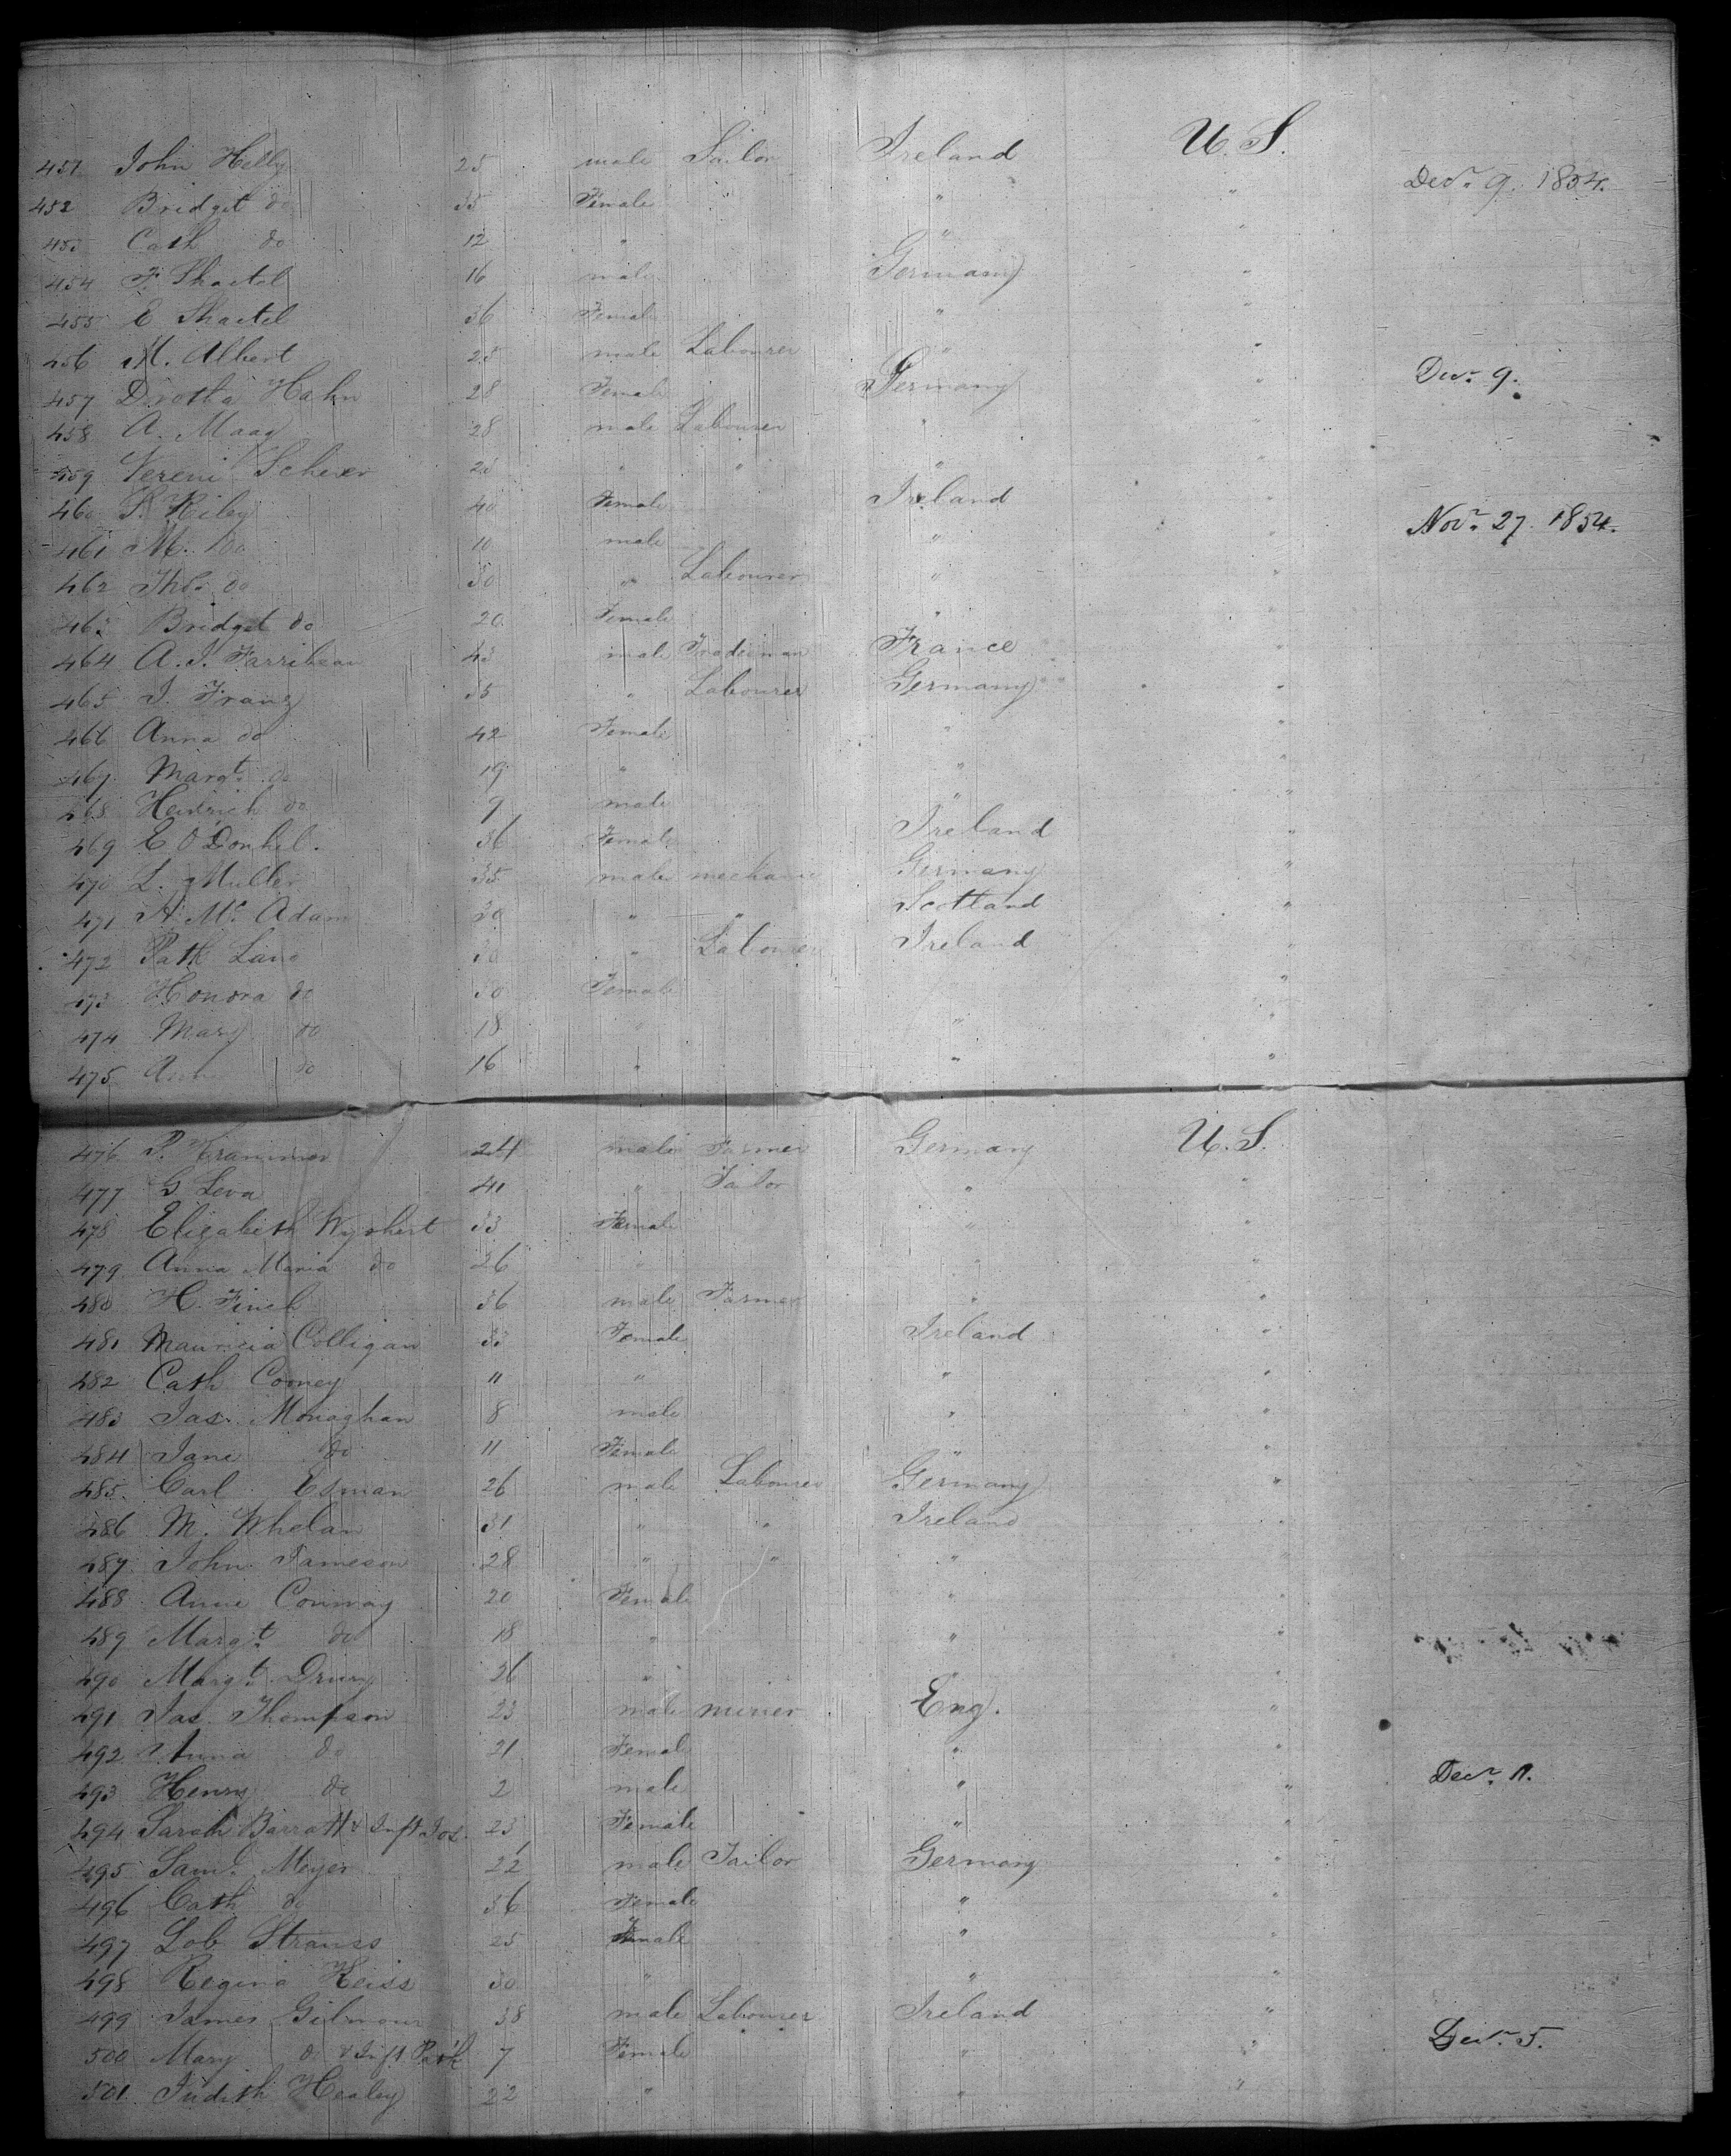 451 John Helly 25 male Sailor Ireland U. S.
452 Bridget do 35 Female " " Decr. 9. 1854.
453 Cath do 12 " " "
454 F. Shactel 16 male Germany "
455 E Shactel 36 Female " "
456 M. Albert 25 male Labourer " "
457 Drotta Hahn 28 Female Germany " Decr. 9.
458 A. Maag 28 male Labourer " "
459 Vereni Scherer 25 " " " "
460 P. Riley 40 Female Ireland "
461 M. do 10 male " " Novr. 27. 1854.
462 Thos. do 30 " Labourer " "
463 Bridget do 20 Female " "
464 A. J. Farribeau 43 male Tradesman France "
465 J. Franz 35 " Labourer Germany "
466 Anna do 42 Female " "
467 Margt. do 19 " " "
468 Heinrich do 9 male " "
469 E O Donhel. 36 Female Ireland "
470 L. Muller 35 male mechanic Germany "
471 A Mc. Adam 30 " " Scotland "
472 Patk Lane 50 " Labourer Ireland "
473 Honora do 50 Female "
474 Mary do 18 " " "
475 Ann do 16 " " "
476 P. Krammer 24 male Farmer Germany U. S.
477 G Leva 41 " Tailor " "
478 Elizabeth Wyshert 33 Female " "
479 Anna Maria do 26 " " "
480 H. Finck 36 male Farmer " "
481 Mauricia Colligan 33 Female Ireland "
482 Cath Cooney 11 " " "
483 Jas. Monaghan 8 male " "
484 Jane do 11 Female " "
485. Carl Esman 26 male Labourer Germany "
486 M. Whelan 31 " " Ireland "
487 John Jameson 28 " " " "
488 Anne Conway 20 Female " "
489 Margt. do 18 " " "
490 Margt. Drury 26 " "
491 Jas. Thompson 23 male miner Eng. "
492 Anna do 21 Female " "
493 Henry do 2 male " " Decr. 1.
494 Sarah Barratt & Inft Jos. 23 Female " "
495 Saml. Meyer 22 male Tailor Germany "
496 Cath do 36 Female " "
497 Lob Strauss 25 Female " "
498 Regina Heiss 30 " " "
499 James Gilmour 38 male Labourer Ireland "
500 Mary do & Inft Patk 7 Female " " Decr. 5.
501 Judith Healey 22 " " "